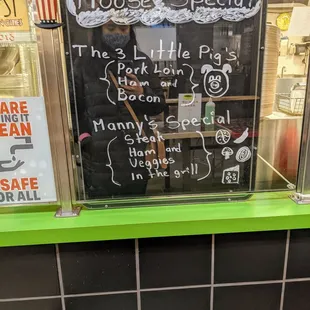 House Special!
The 3 Little Pig's
Pork Loin
Ham and
Bacon
Manny's Special
Steak
Ham and
Veggies
In the grill
ARE
IT
EAN
SAFE
OR ALL